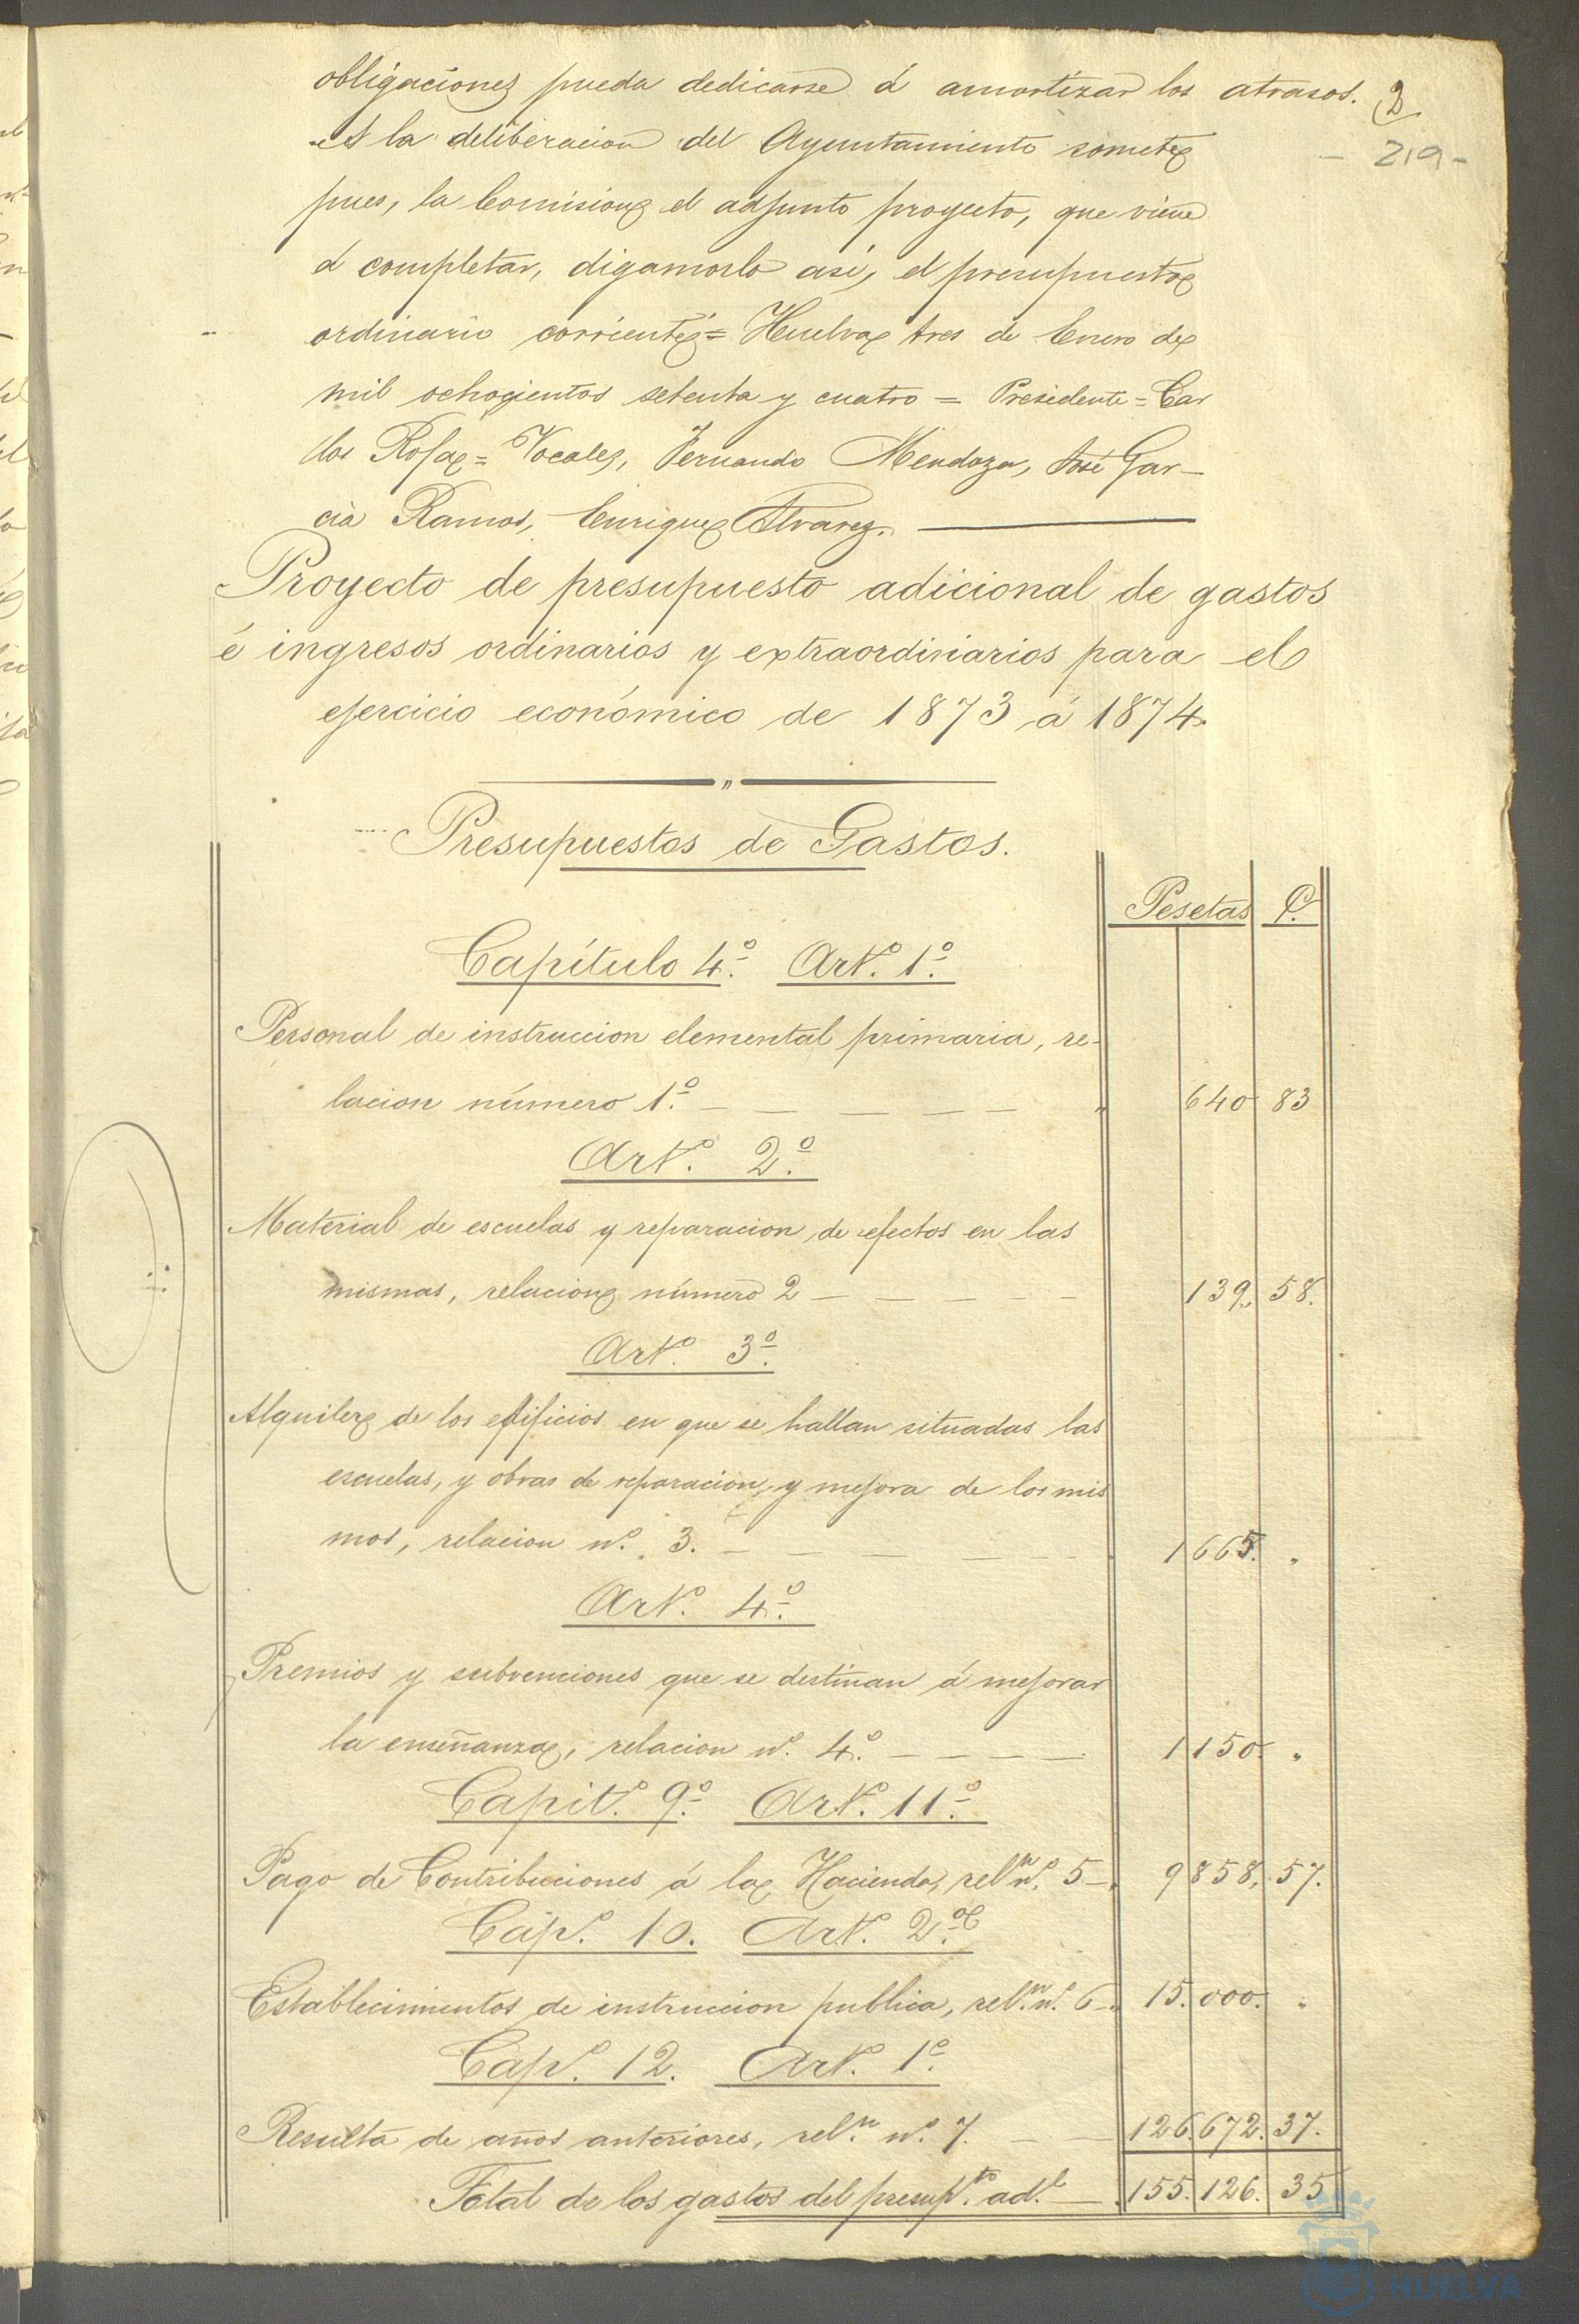 obligaciones pueda dedicarse á amortizar los atrasos. 2
- 219 -
A la deliberacion del Ayuntamiento somete
pues, la Comision el adjunto proyecto, que viene
á completar, digamoslo asi, el presupuesto
ordinario corriente = Huelva tres de Enero de
mil ochocientos setenta y cuatro = Presidente = Car
los Rosa = Vocales, Fernando Mendoza, José Gar-
cia Ramos, Enrique Alvarez.
Proyecto de presupuesto adicional de gastos
é ingresos ordinarios y extraordinarios para el
ejercicio económico de 1873 á 1874.
Presupuestos de Gastos.
Pesetas C.
Capítulo 4º. Artº. 1º.
Personal de instruccion elemental primaria, re-
lacion número 1º. — — — — — " 640 83
Artº. 2º.
Material de escuelas y reparacion de efectos en las
mismas, relacion número 2 — — — — — 139., 58.
Artº. 3º.
Alquiler de los edificios en que se hallan situadas las
escuelas, y obras de reparacion, y mejora de los mis
mos, relacion nº. 3. — — — — — 1665. "
Artº. 4º.
Premios y subvenciones que se destinan á mejorar
la enseñanza, relacion nº. 4º. — — — — 1150. "
Capitº. 9º. Artº. 11º.
Pago de Contribuciones á la Hacienda, relⁿ nº. 5 — 9858, 57.
Capº. 10. Artº. 2º.
Establecimientos de instruccion publica, rel.ⁿ nº. 6 — 15.000. "
Capº. 12. Artº. 1º.
Resulta de años anteriores, rel.ⁿ nº. 7. — — 126.672. 37.
Total de los gastos del presup.ᵗᵒ ad.ˡ — 155.126. 35
HUELVA